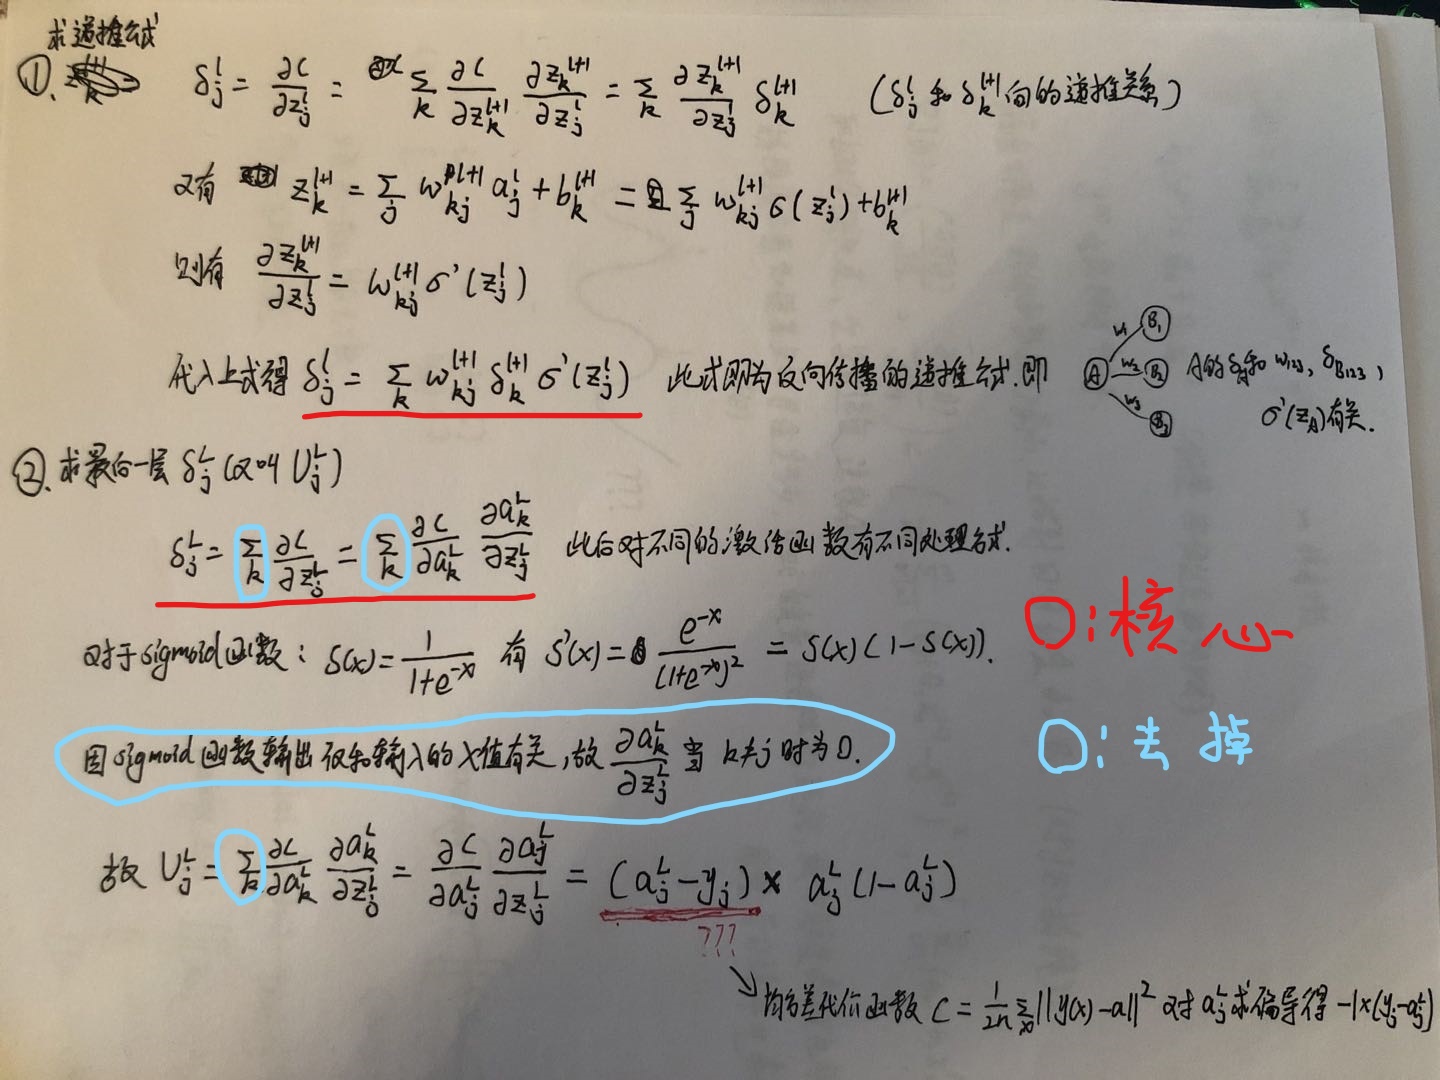 求递推公式
①. δ_j^l = ∂C/∂z_j^l = Σ_k ∂C/∂z_k^{l+1} ∂z_k^{l+1}/∂z_j^l = Σ_k ∂z_k^{l+1}/∂z_j^l δ_k^{l+1} (δ_j^l 和 δ_k^{l+1} 间的递推关系)
又有 z_k^{l+1} = Σ_j w_{kj}^{l+1} a_j^l + b_k^{l+1} = Σ_j w_{kj}^{l+1} σ(z_j^l) + b_k^{l+1}
则有 ∂z_k^{l+1}/∂z_j^l = w_{kj}^{l+1} σ'(z_j^l)
代入上式得 δ_j^l = Σ_k w_{kj}^{l+1} δ_k^{l+1} σ'(z_j^l) 此式即为反向传播的递推公式.即
A w₁ B₁ w₂ B₂ w₃ B₃
A的δ_A和 w₁₂₃, δ_{B123},
σ'(z_A)有关.
②.求最后一层 δ_j^L (又叫 U_j^L)
δ_j^L = Σ_k ∂C/∂z_j^L = Σ_k ∂C/∂a_k^L ∂a_k^L/∂z_j^L 此后对不同的激活函数有不同处理方式.
对于sigmoid函数: S(x) = 1/(1+e^{-x}) 有 S'(x) = e^{-x}/(1+e^{-x})² = S(x)(1-S(x)).
O:核心
因sigmoid函数输出仅和输入的x值有关,故 ∂a_k^L/∂z_j^L 当 k≠j 时为0.
O:去掉
故 U_j^L = Σ_k ∂C/∂a_k^L ∂a_k^L/∂z_j^L = ∂C/∂a_j^L ∂a_j^L/∂z_j^L = (a_j^L - y_j) × a_j^L (1-a_j^L)
???
均方差代价函数 C = 1/2n Σ_x ||y(x)-a||² 对 a_j^L 求偏导得 -1×(y_j-a_j^L)